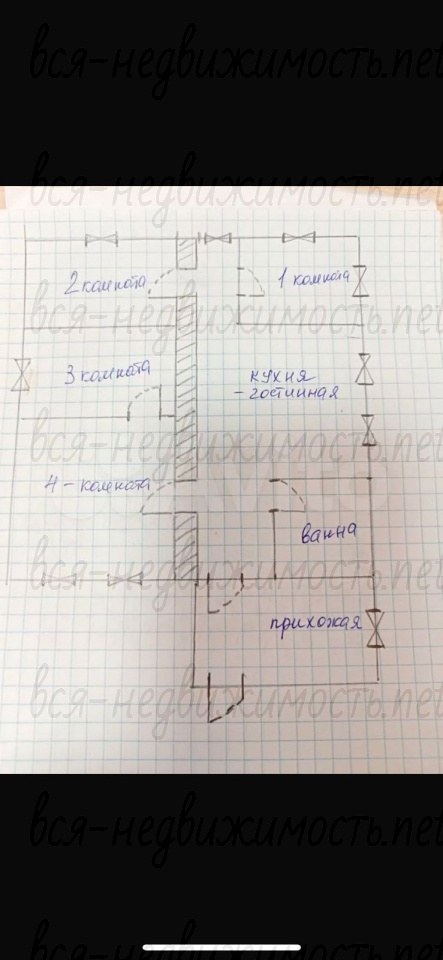 вся-недвижимость.net
вся-недвижимость.net
2 комната
1 комната
вся-недвижимость.net
3 комната
кухня
- гостинная
вся-недвижимость.net
4 - комната
ванна
вся-недвижимость.net
прихожая
вся-недвижимость.net
вся-недвижимость.net
вся-недвижимость.net